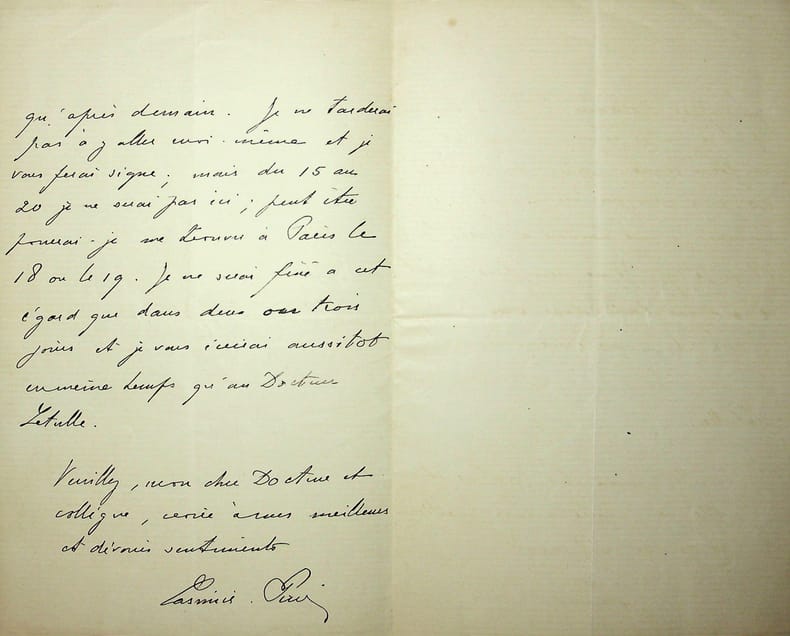 qu'après demain. Je ne tarderai
pas à y aller moi-même et je
vous ferai signe ; mais du 15 au
20 je ne serai pas ici ; peut être
pourrai-je me trouver à Paris le
18 ou le 19. Je ne serai fixé a cet
égard que dans deux ou trois
jours et je vous écrirai aussitot
en même temps qu'au Docteur
Letulle.
Veuillez, mon cher Docteur et
collègue, croire à mes meilleurs
et dévoués sentiments
Casimir-Périer